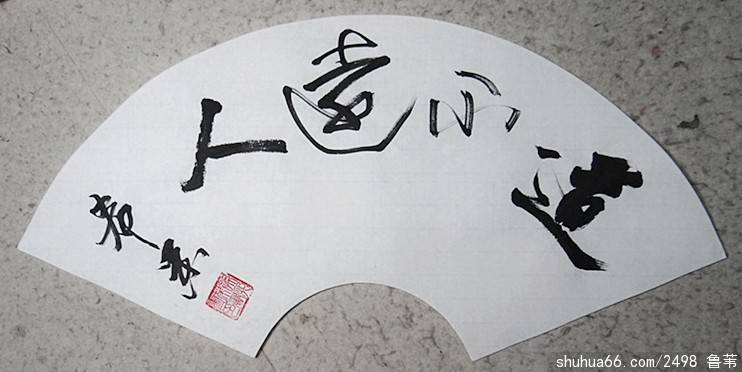 道不遠人
shuhua66.com/2498 鲁苇